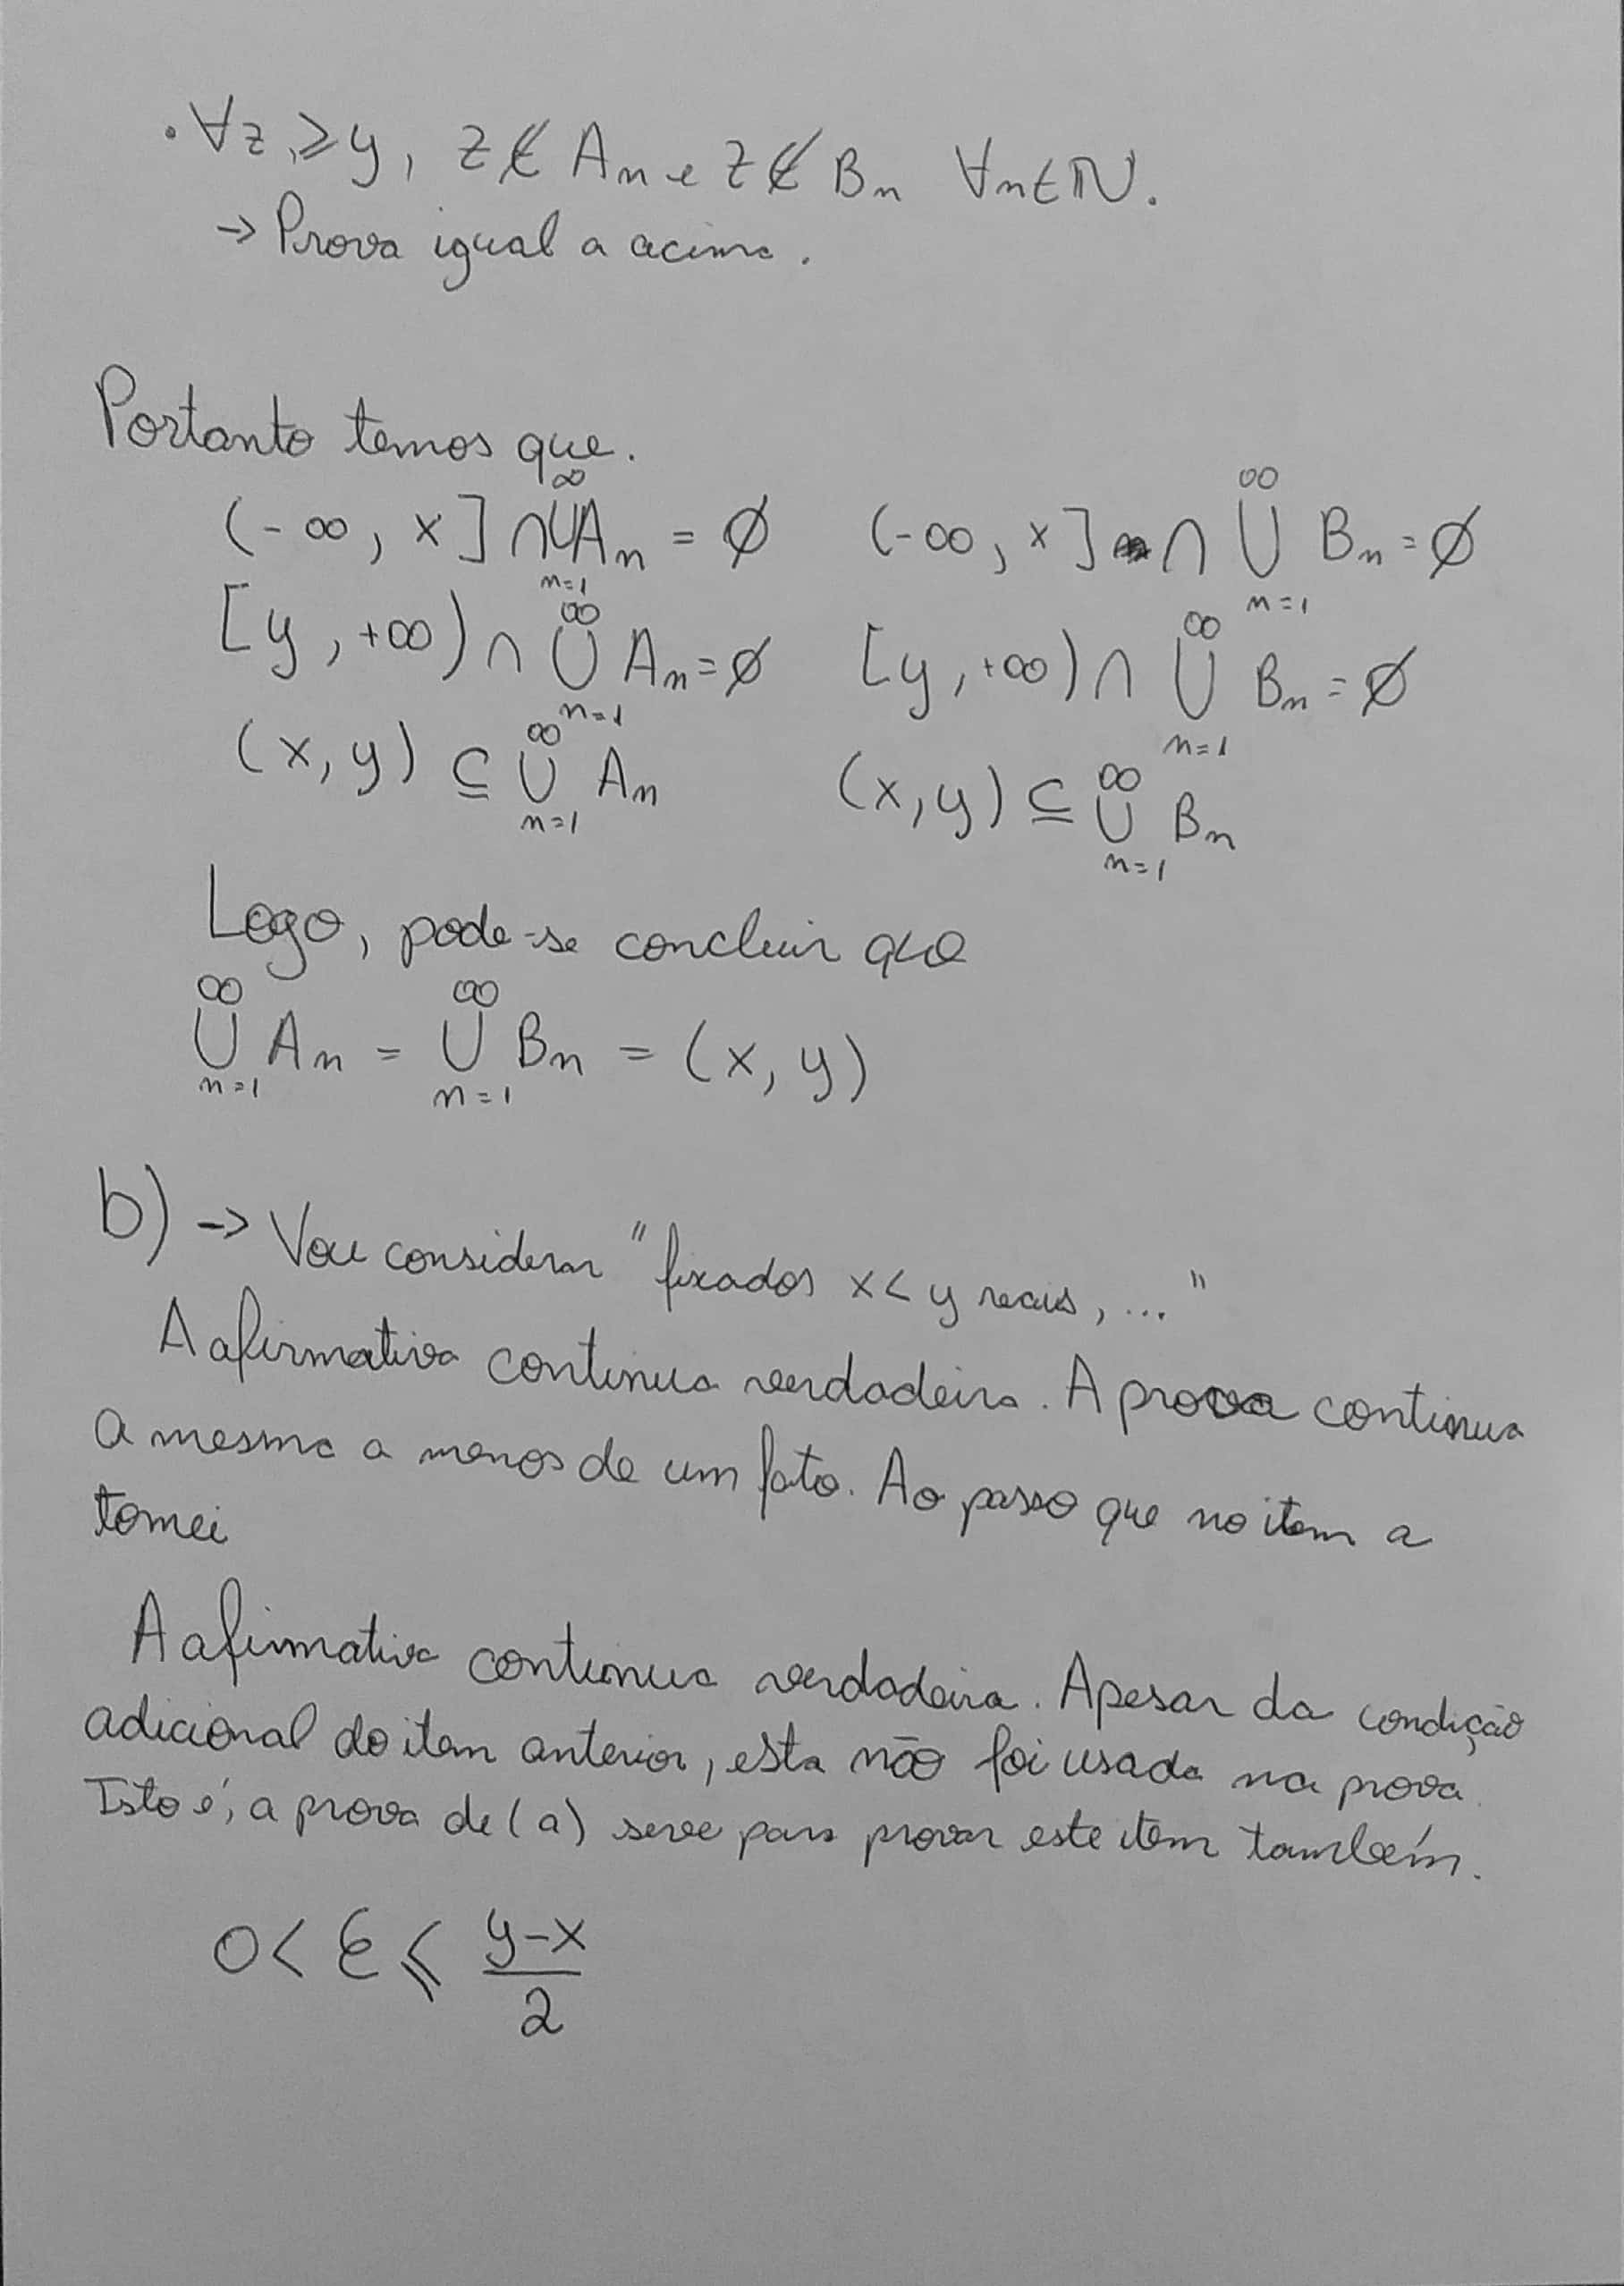 • ∀z ≥ y, z ∉ An e z ∉ Bn ∀n∈ℕ.
→ Prova igual a acima.
Portanto temos que.
(-∞, x] ∩ ⋃_{n=1}^{∞} An = ∅ (-∞, x] ∩ ⋃_{n=1}^{∞} Bn = ∅
[y, +∞) ∩ ⋃_{n=1}^{∞} An = ∅ [y, +∞) ∩ ⋃_{n=1}^{∞} Bn = ∅
(x, y) ⊆ ⋃_{n=1}^{∞} An (x, y) ⊆ ⋃_{n=1}^{∞} Bn
Logo, pode-se concluir que
⋃_{n=1}^{∞} An = ⋃_{n=1}^{∞} Bn = (x, y)
b) → Vou considerar "fixados x < y reais, ..."
A afirmativa continua verdadeira. A prova continua
a mesma a menos de um fato. Ao passo que no item a
tomei
A afirmativa continua verdadeira. Apesar da condição
adicional do item anterior, esta não foi usada na prova.
Isto é, a prova de (a) serve para provar este item também.
0 < ε ≤ \frac{y-x}{2}